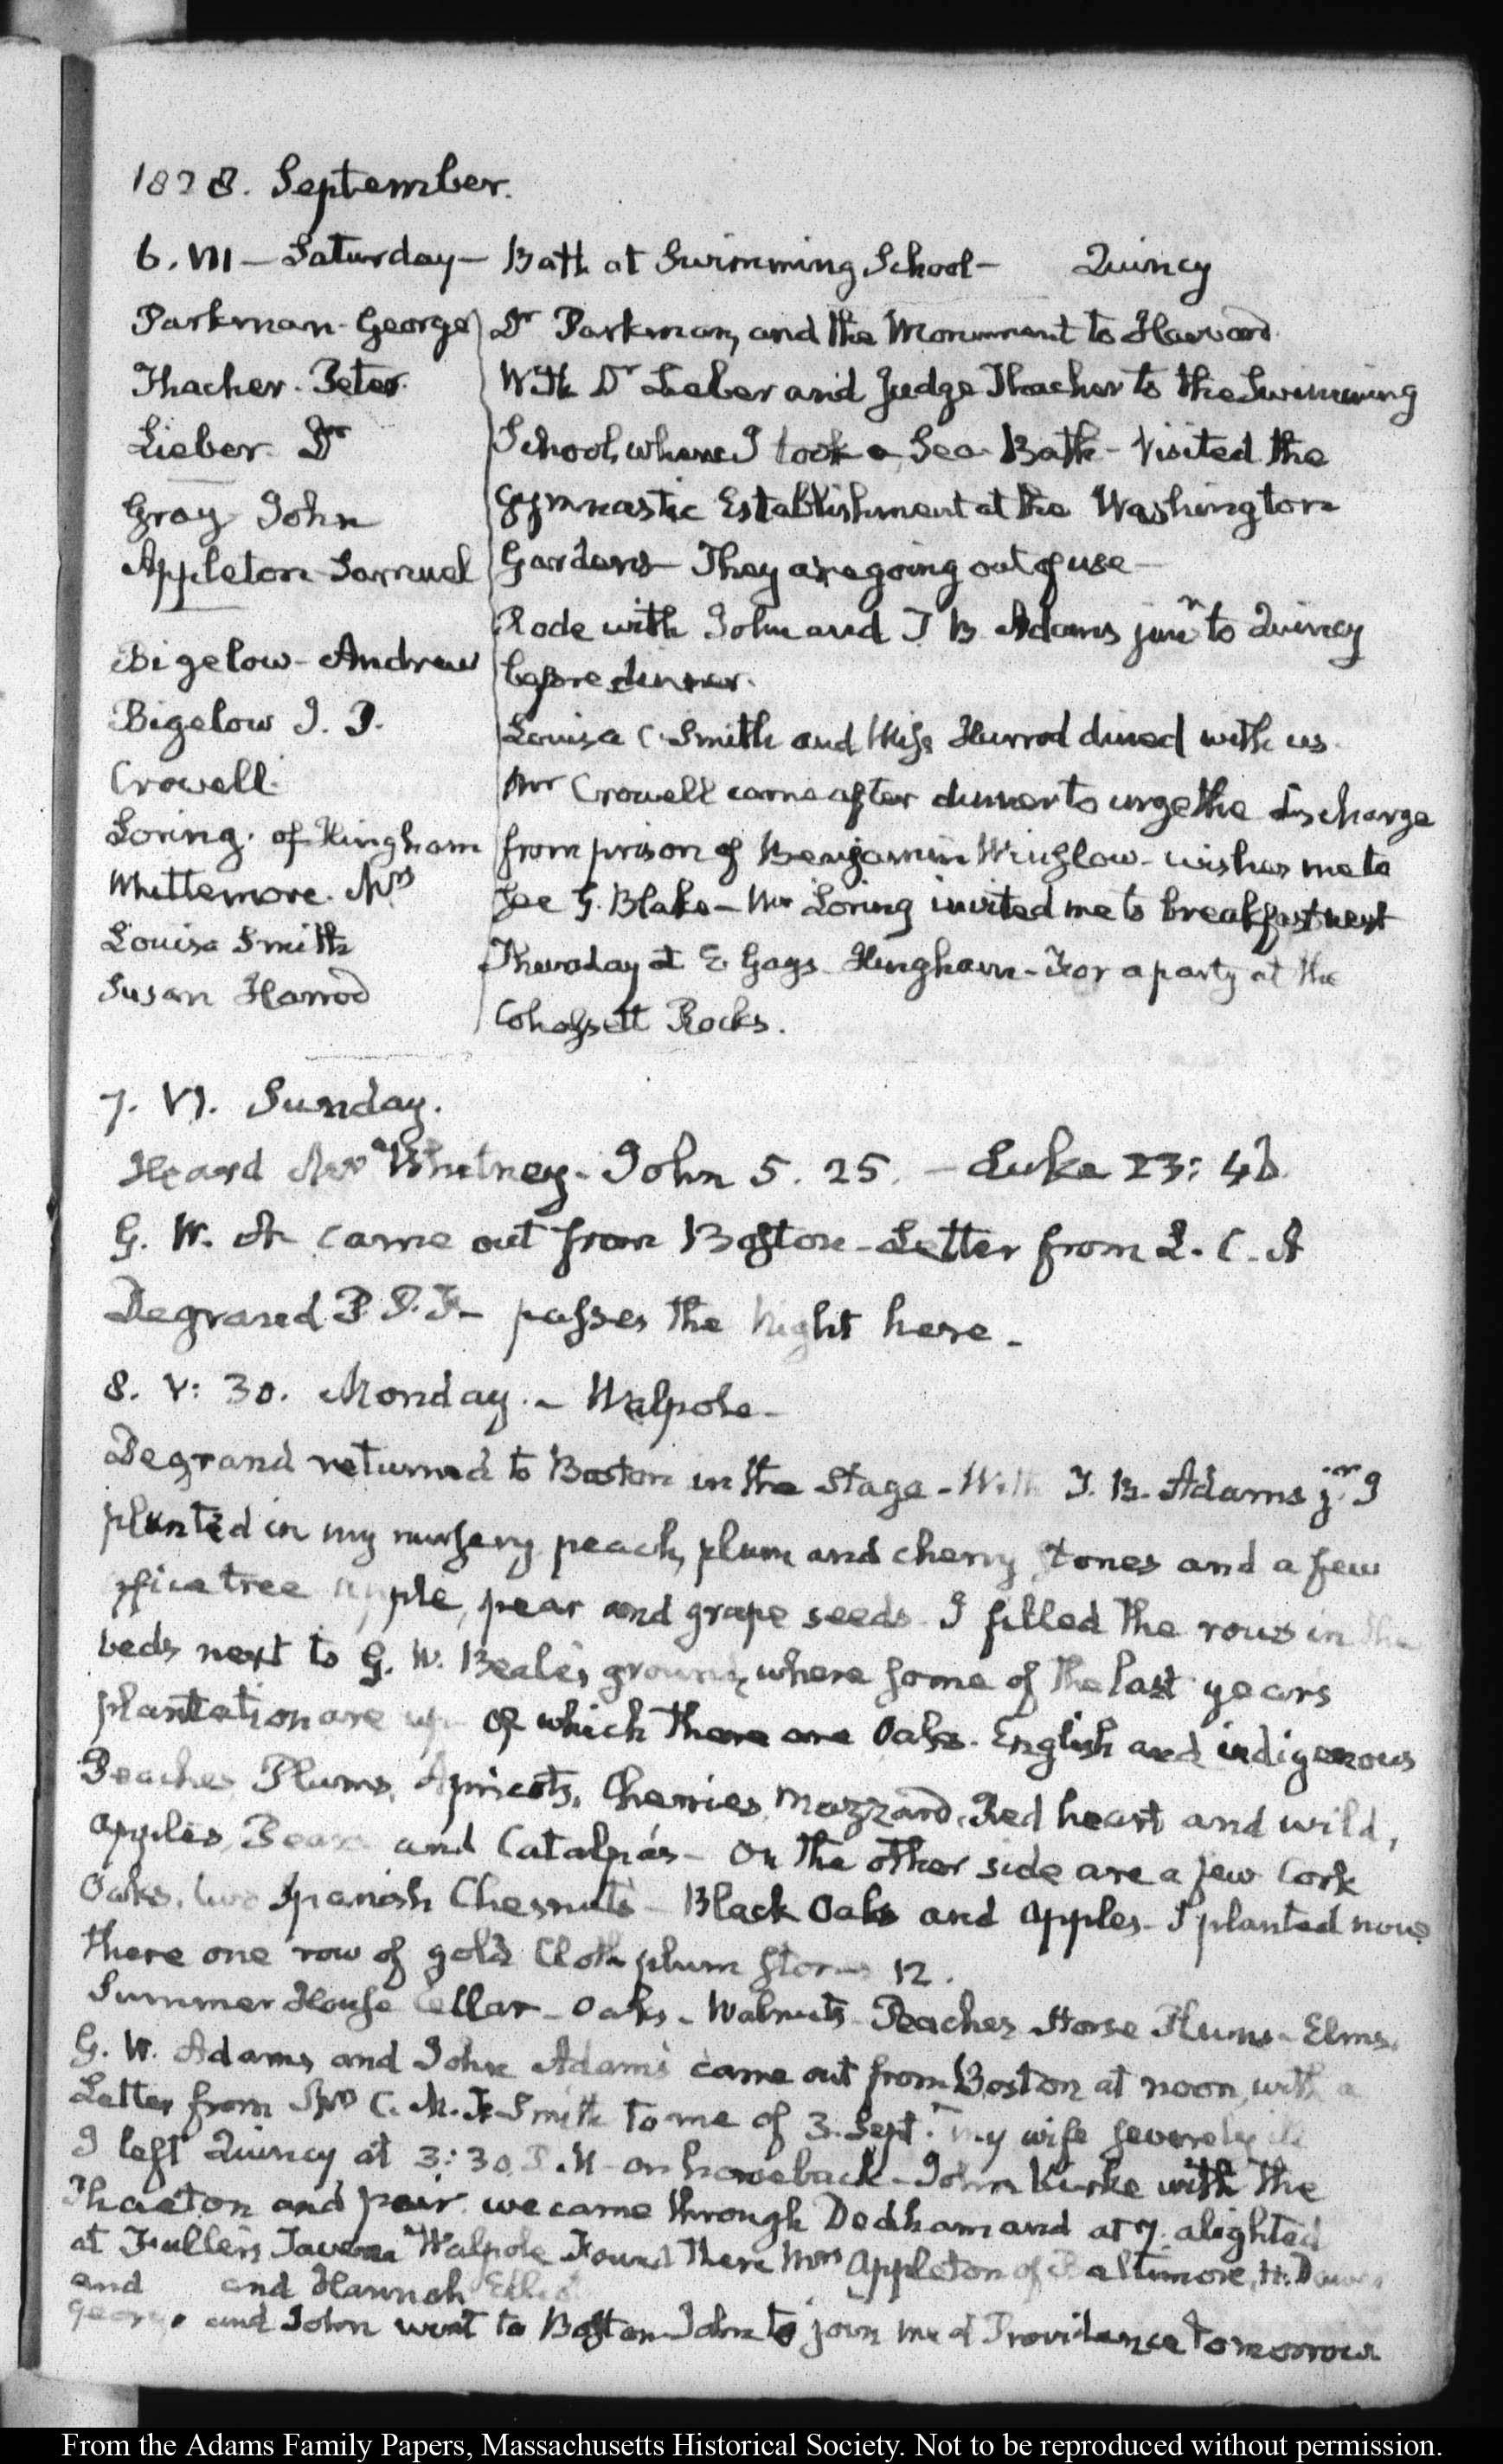 1828. September.
6. VII — Saturday — Bath at Swimming School — Quincy
Parkman. George
Thacher. Peter.
Lieber. Dr
Gray John
Appleton Samuel
Bigelow - Andrew
Bigelow J. P.
Crowell.
Loring. of Hingham
Whittemore. Mrs
Louisa Smith
Susan Harrod
Dr Parkman, and the Monument to Harvard.
With Dr Leiber and Judge Thacher to the Swimming
School, where I took a Sea Bath - Visited the
Gymnastic Establishment at the Washington
Gardens — They are going out of use —
Rode with John and T. B. Adams junr to Quincy
before dinner.
Louisa C. Smith and Miss Harrod dined with us.
Mr Crowell came after dinner to urge the discharge
from prison of Benjamin Winslow - wishes me to
see G. Blake — Mr Loring invited me to breakfast next
Thursday at E. Gays Hingham - For a party at the
Cohassett Rocks.
7. VI. Sunday.
Heard Mr Whitney - John 5. 25. — Luke 23: 46
G. W. A. came out from Boston - Letter from L. C. A
Degrand P. P. F. - passes the Night here -
8. V: 30. Monday. - Walpole -
Degrand returned to Boston in the Stage - With T. B. Adams jr. I
planted in my nursery peach, plum and cherry stones and a few
spice tree apple, pear and grape seeds. I filled the rows in the
beds next to G. W. Beale's ground, where some of the last years
plantation are up - of which there are Oaks - English and indigenous
Peaches, Plums, Apricots, Cherries, Mazzard, Red heart and wild,
apples, Pears and Catalpa's - On the other side are a few Cork
Oaks, two Spanish Chesnuts - Black Oaks and apples - I planted now
there one row of gold Cloth plum stones 12.
Summer House Cellar - Oaks - Walnuts - Peaches Horse Plums - Elms.
G. W. Adams, and John Adams came out from Boston at noon, with a
Letter from Mrs C. M. F. Smith to me of 3. Sept. my wife severely ill
I left Quincy at 3: 30. P. M - on horseback - John Kirke with the
Phaeton and pair. we came through Dedham and at 7. alighted
at Fuller's Tavern Walpole Found there Mrs Appleton of Baltimore, H. Dawes
and and Hannah
George and John went to Boston John to join me at Providence tomorrow
From the Adams Family Papers, Massachusetts Historical Society. Not to be reproduced without permission.